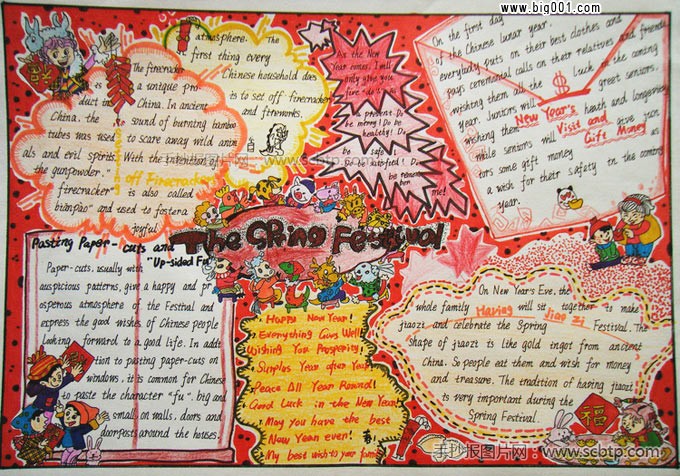 www.big001.com
The firecracker
is a unique pro
duct in China. In ancient
China, the sound of burning bamboo
tubes was used to scare away wild anim
als and evil spirits. With the invention of
the gunpowder."
firecracker" is also called
bianpao" and used to foster a
joyful
atmosphere. The
first thing every
Chinese household does
is to set off firecrackers
and fireworks.
off Firecracker
As the New
Year comes, I will
only give you
five "do"s:
present. Do
be merry! Do be
healthy! Do
be safe!
be satisfied! Do
be remember
me!
On the first day
of the Chinese lunar year.
everybody puts on their best clothes and
pays ceremonial calls on their relatives and friends
wishing them all the $ luck in the coming
year. Juniors will greet seniors.
wishing them heath and longevity
New Year's
Visit and
Gift Money
while seniors will give jun
iors some gift money as
a wish for their safety in the coming
year.
The SPring Festival
Pasting Paper-cuts and
"Up-sided Fu"
Paper-cuts, usually with
auspicious patterns, give a happy and pr
osperous atmosphere of the Festival and
express the good wishes of Chinese people
looking forward to a good life. In addi
tion to pasting paper-cuts on
windows, it is common for Chinese
to paste the character "fu", big and
small, on walls, doors and
doorposts around the houses.
Happy New Year!
Everything Goes Well!
Wishing You Prosperity!
Surplus Year after Year
Peace All Year Round!
Good Luck in the New Year!
May you have the best
New Year ever!
My best wish to your family
On New Year's Eve, the
whole family will sit together to make
Having Jiao Zi
jiaozi and celebrate the Spring Festival. The
shape of jiaozi is like gold ingot from ancient
China. So people eat them and wish for money
and treasure. The tradition of having jiaozi
is very important during the
Spring Festival.
福
手抄报图片网:www.scbtp.com